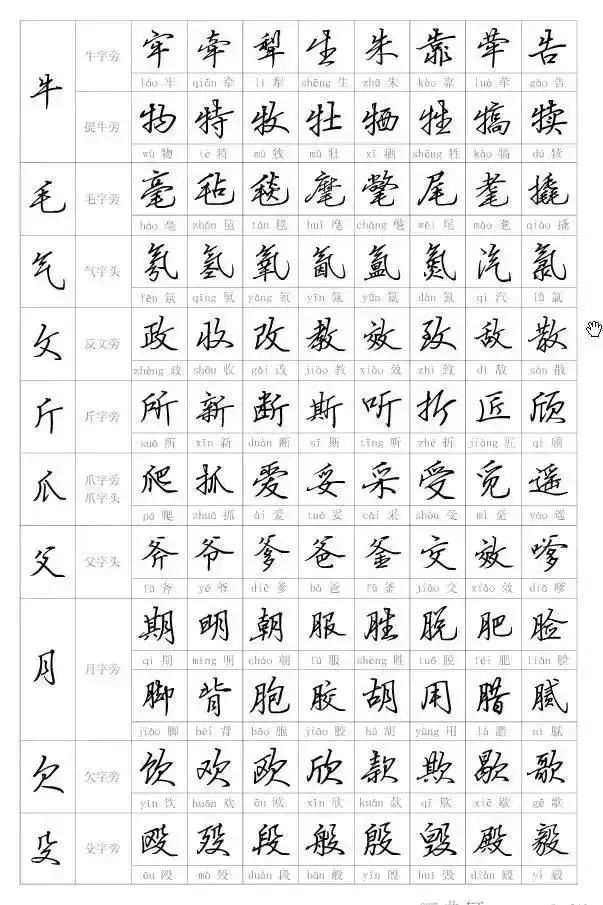 牛 牛字旁 牢 牵 犁 生 朱 靠 荦 告
láo 牢 qiān 牵 lí 犁 shēng 生 zhū 朱 kào 靠 luò 荦 gào 告
提牛旁 物 特 牧 牡 牺 牲 犒 犊
wù 物 tè 特 mù 牧 mǔ 牡 xī 牺 shēng 牲 kào 犒 dú 犊
毛 毛字旁 毫 毡 毯 麾 氅 尾 耄 撬
háo 毫 zhān 毡 tǎn 毯 huī 麾 chǎng 氅 wěi 尾 mào 耄 qiào 撬
气 气字头 氛 氢 氧 氤 氲 氮 汽 氯
fēn 氛 qīng 氢 yǎng 氧 yīn 氤 yūn 氲 dàn 氮 qì 汽 氯
攵 反文旁 政 收 改 教 效 致 敌 散
zhèng 政 shōu 收 gǎi 改 jiào 教 xiào 效 zhì 致 dí 敌 sàn 散
斤 斤字旁 所 新 断 斯 听 折 匠 颀
suǒ 所 xīn 新 duàn 断 sī 斯 tīng 听 zhé 折 jiàng 匠 qí 颀
爪 爪字旁 爪字头 爬 抓 爱 妥 采 受 觅 遥
pá 爬 zhuā 抓 ài 爱 tuǒ 妥 cǎi 采 shòu 受 mì 觅 yáo 遥
父 父字头 斧 爷 爹 爸 釜 交 效 嗲
fǔ 斧 yé 爷 diē 爹 bà 爸 fǔ 釜 jiāo 交 xiào 效 diǎ 嗲
月 月字旁 期 明 朝 服 胜 脱 肥 脸
qī 期 míng 明 cháo 朝 fú 服 shèng 胜 tuō 脱 féi 肥 liǎn 脸
脚 背 胞 胶 胡 用 腊 腻
jiǎo 脚 bèi 背 bāo 胞 jiāo 胶 hú 胡 yòng 用 là 腊 nì 腻
欠 欠字旁 饮 欢 欧 欣 款 欺 歇 歌
yǐn 饮 huān 欢 ōu 欧 xīn 欣 kuǎn 款 qī 欺 xiē 歇 gē 歌
殳 殳字旁 殴 殁 段 般 殷 毁 殿 毅
ōu 殴 mò 殁 duàn 段 bān 般 yīn 殷 huǐ 毁 diàn 殿 yì 毅